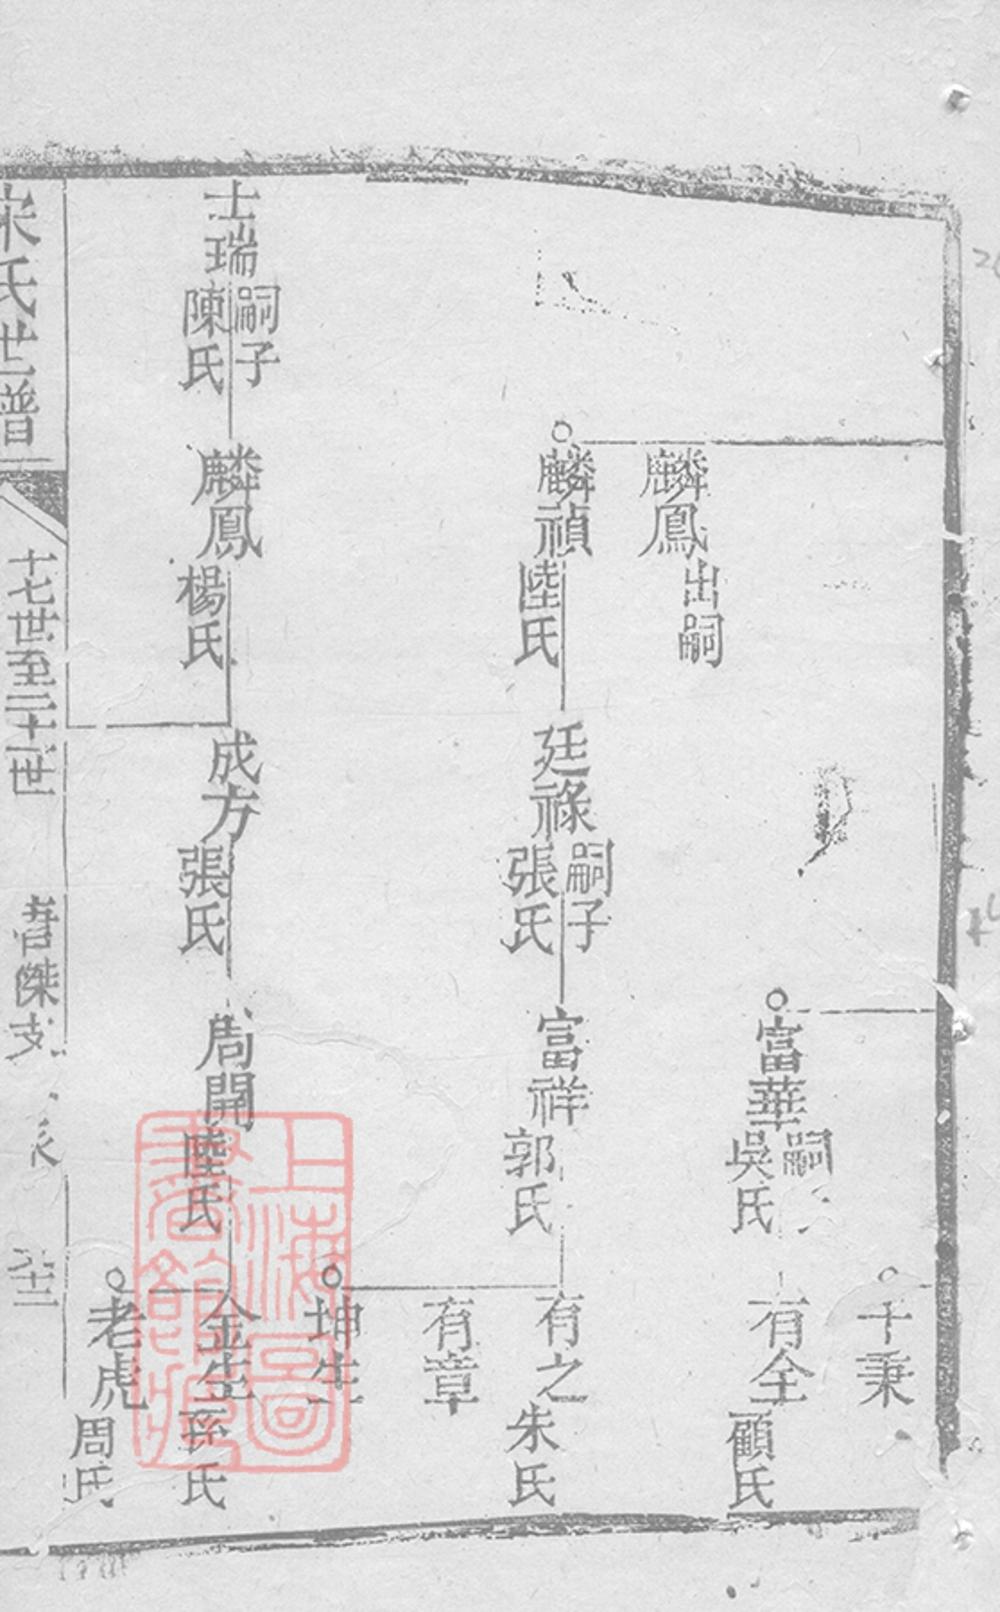 千秉
富華
嗣
吳氏
有全
顧氏
麟鳳
出嗣
麟禎
陸氏
廷祿
嗣子
張氏
富祥
郭氏
有之
朱氏
有章
坤生
士瑞
嗣子
陳氏
麟鳳
楊氏
成方
張氏
周開
陸氏
金生
孫氏
老虎
周氏
宋氏世譜
十七世至二十一世
上海圖書館藏